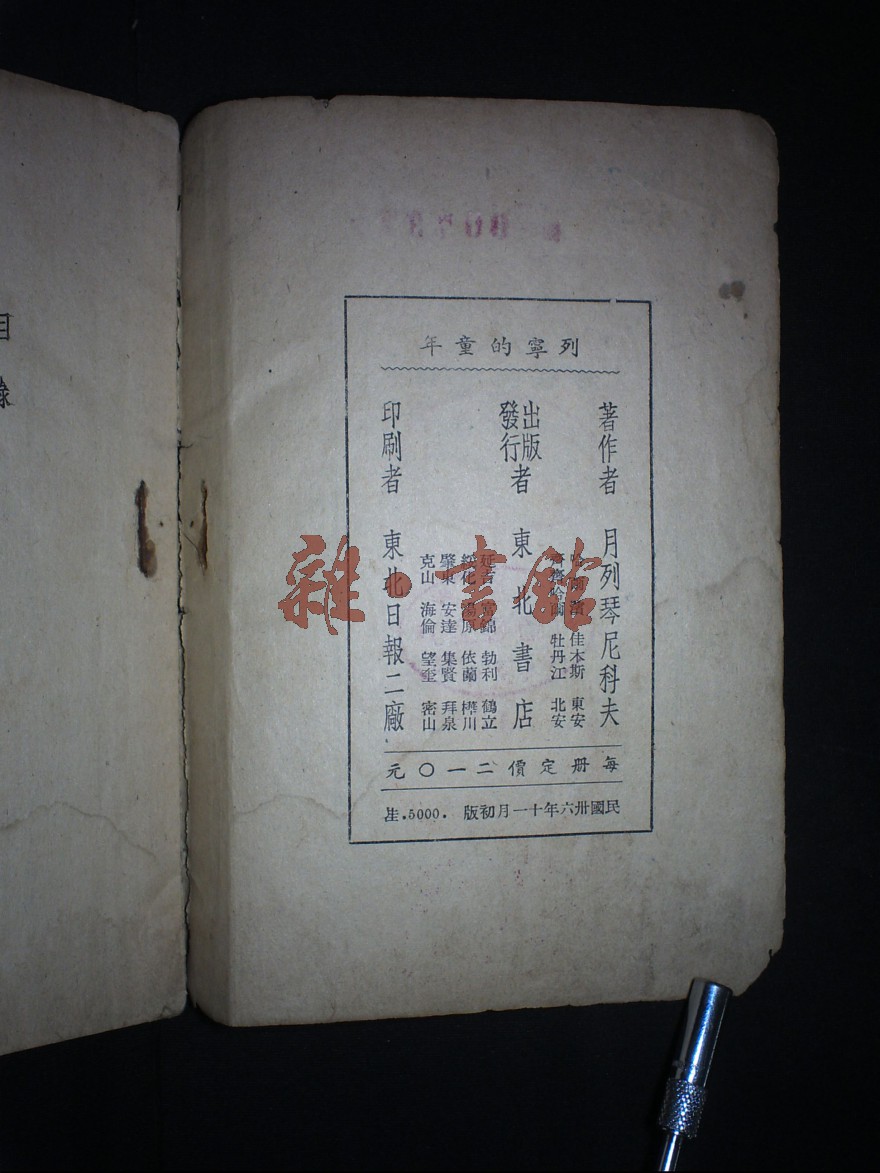 列寧的童年
著作者 月列琴尼科夫
哈爾濱 佳木斯 東安
齊齊哈爾 牡丹江 北安
出版
發行者 東北書店
延吉 富錦 勃利 鶴立
綏化 湯原 依蘭 樺川
肇東 安達 集賢 拜泉
克山 海倫 望奎 密山
印刷者 東北日報二廠
每册定價二一〇元
民國卅六年十一月初版 .5000.隹
目錄
雜·書館